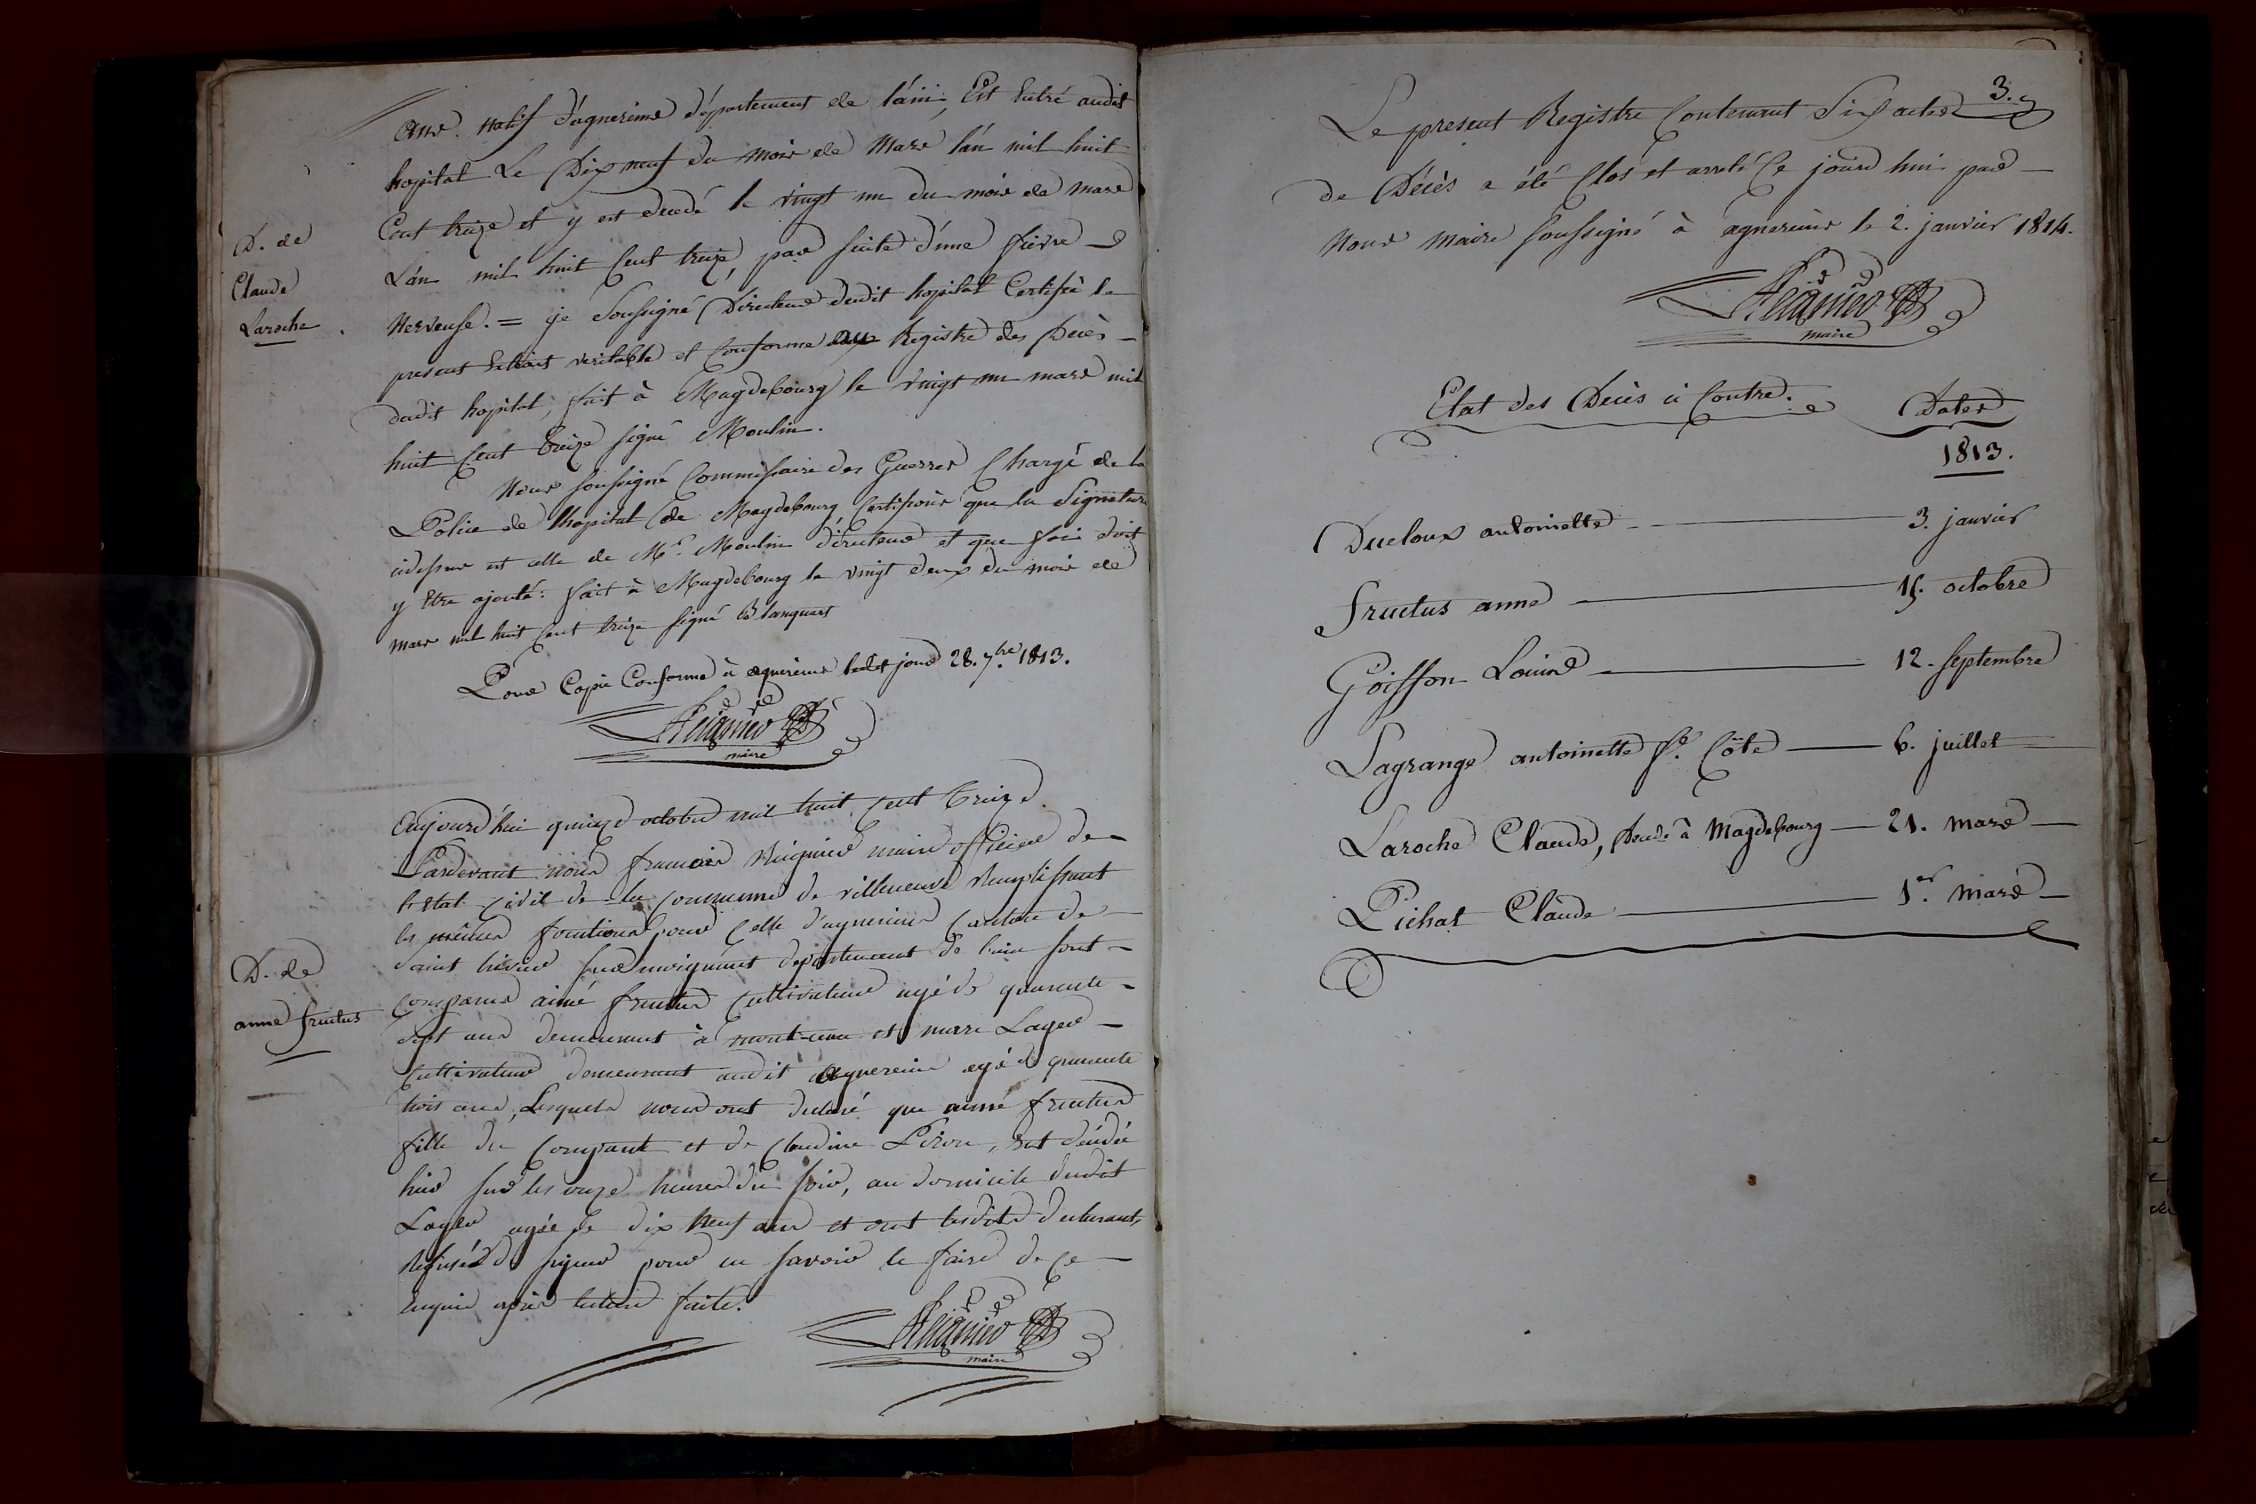 ans. natif d'agnereins département de l'ain, Est Entré audit
hopital Le Dix neuf du mois de Mars l'an mil huit
Cent treize et y est decedé le vingt un du mois de mars
L'an mil huit Cent treize, par suite d'une fievre
Nerveuse. = je Soussigné Directeur dudit hopital Certifie le
present Extrait veritable et Conforme au Registre des Decès
dudit hopital, fait à Magdebourg le vingt un mars mil
huit Cent treize signé Moulin.
D. de
Claude
Laroche
Nous soussigné Commissaire des Guerres Chargé de la
Police de l'hopital de Magdebourg Certifions que la Signature
cidessus est celle de Mr. Moulin directeur et que foi doit
y Etre ajouté: fait à Magdebourg le vingt deux du mois de
mars mil huit Cent treize signé Blanquart
Pour Copie Conforme à agnereins ledit jour 28. 7bre 1813.
maire
D. de
anne fructus
Aujourd'hui quinze octobre mil huit Cent treize
Pardevant nous francois maire officier de
l'Etat Civil de la Commune de villeneuve Remplissant
les mêmes fonctions pour Celle d'agnereins Canton de
Saint trivier sur moignant departement de l'ain sont
Comparus aimé fructus Cultivateur agé de quarante
Sept ans demeurant à et marc Layer
Cultivateur demeurant audit agnereins agé de quarante
trois ans, Lesquels nous ont declaré que anne fructus
fille du Comparant et de Claudine Piron, Est décédée
hier sur les onze heures du soir, au domicile dudit
Layer agée de dix neuf ans et ont lesdits declarants
Refusés de signer pour ne savoir le faire de Ce
Enquis après lecture faite.
maire
3.
Le present Registre Contenant Six actes
de Décès a été Clos et arreté Ce jourd'hui par
Nous maire soussigné à agnereins le 2. janvier 1814.
maire
Etat des Décès ci Contre. Dates
1813.
Ducloux antoinette 3. janvier
Fructus anne 15. octobre
Goiffon Louise 12. septembre
Lagrange antoinette fe. Côte 6. juillet
Laroche Claude, Decedé à Magdebourg 21. mars
Pichat Claude 1er. mars